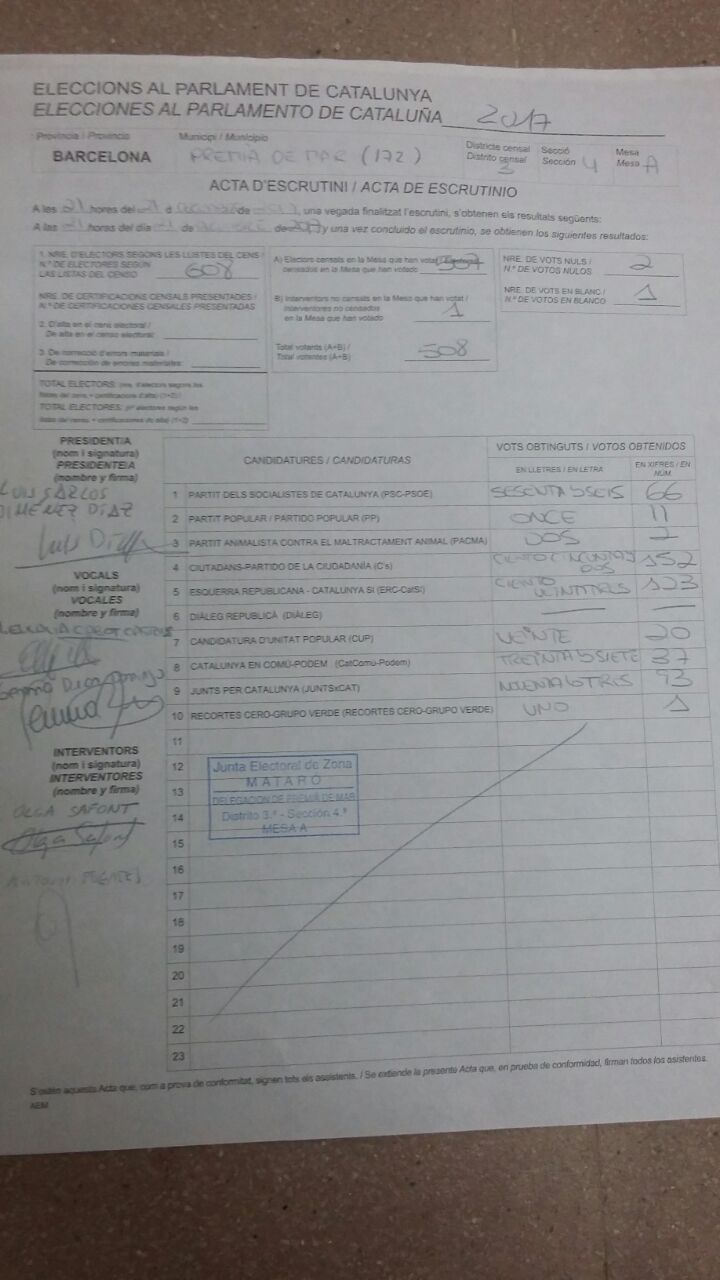 ELECCIONS AL PARLAMENT DE CATALUNYA
ELECCIONES AL PARLAMENTO DE CATALUÑA 2017
Província / Provincia Municipi / Municipio Districte censal Secció Mesa
BARCELONA PREMIA DE MAR (172) Distrito censal 3 Sección 4 Mesa A
ACTA D'ESCRUTINI / ACTA DE ESCRUTINIO
A les 21 hores del 21 d de , una vegada finalitzat l'escrutini, s'obtenen els resultats següents:
A las 21 horas del día 21 de de 2017 y una vez concluido el escrutinio, se obtienen los siguientes resultados:
1. NRE. D'ELECTORS SEGONS LES LLISTES DEL CENS /
N.º DE ELECTORES SEGÚN
LAS LISTAS DEL CENSO 608
NRE. DE CERTIFICACIONS CENSALS PRESENTADES /
N.º DE CERTIFICACIONES CENSALES PRESENTADAS
2. D'alta en el cens electoral /
De alta en el censo electoral:
3. De correcció d'errors materials /
De corrección de errores materiales:
TOTAL ELECTORS: (nre. d'electors segons les
llistes del cens + certificacions d'alta) (1+2) /
TOTAL ELECTORES: (nº electores según las
listas del censo + certificaciones de alta) (1+2)
A) Electors censats en la Mesa que han votat / Electores
censados en la Mesa que han votado 507
B) Interventors no censats en la Mesa que han votat /
Interventores no censados
en la Mesa que han votado 1
Total votants (A+B) /
Total votantes (A+B) 508
NRE. DE VOTS NULS /
N.º DE VOTOS NULOS 2
NRE. DE VOTS EN BLANC /
N.º DE VOTOS EN BLANCO 1
PRESIDENT/A
(nom i signatura)
PRESIDENTE/A
(nombre y firma)
LUIS SARCOS
JIMENEZ DIAZ
VOCALS
(nom i signatura)
VOCALES
(nombre y firma)
INTERVENTORS
(nom i signatura)
INTERVENTORES
(nombre y firma)
OLGA SAFONT
Olga Safont
CANDIDATURES / CANDIDATURAS
VOTS OBTINGUTS / VOTOS OBTENIDOS
EN LLETRES / EN LETRA EN XIFRES / EN NÚM.
1 PARTIT DELS SOCIALISTES DE CATALUNYA (PSC-PSOE) SESENTA Y SEIS 66
2 PARTIT POPULAR / PARTIDO POPULAR (PP) ONCE 11
3 PARTIT ANIMALISTA CONTRA EL MALTRACTAMENT ANIMAL (PACMA) DOS 2
4 CIUTADANS-PARTIDO DE LA CIUDADANÍA (C's) CIENTO CINCUENTA Y DOS 152
5 ESQUERRA REPUBLICANA - CATALUNYA SÍ (ERC-CatSí) CIENTO 123
6 DIÀLEG REPUBLICÀ (DIÀLEG) — —
7 CANDIDATURA D'UNITAT POPULAR (CUP) VEINTE 20
8 CATALUNYA EN COMÚ-PODEM (CatComú-Podem) TREINTA Y SIETE 37
9 JUNTS PER CATALUNYA (JUNTSxCAT) 93
10 RECORTES CERO-GRUPO VERDE (RECORTES CERO-GRUPO VERDE) UNO 1
11
12
13
14
15
16
17
18
19
20
21
22
23
Junta Electoral de Zona
MATARÓ
DELEGACION DE PREMIÀ DE MAR
Distrito 3.º - Sección 4.ª
MESA A
S'estén aquesta Acta que, com a prova de conformitat, signen tots els assistents. / Se extiende la presente Acta que, en prueba de conformidad, firman todos los asistentes.
AEM